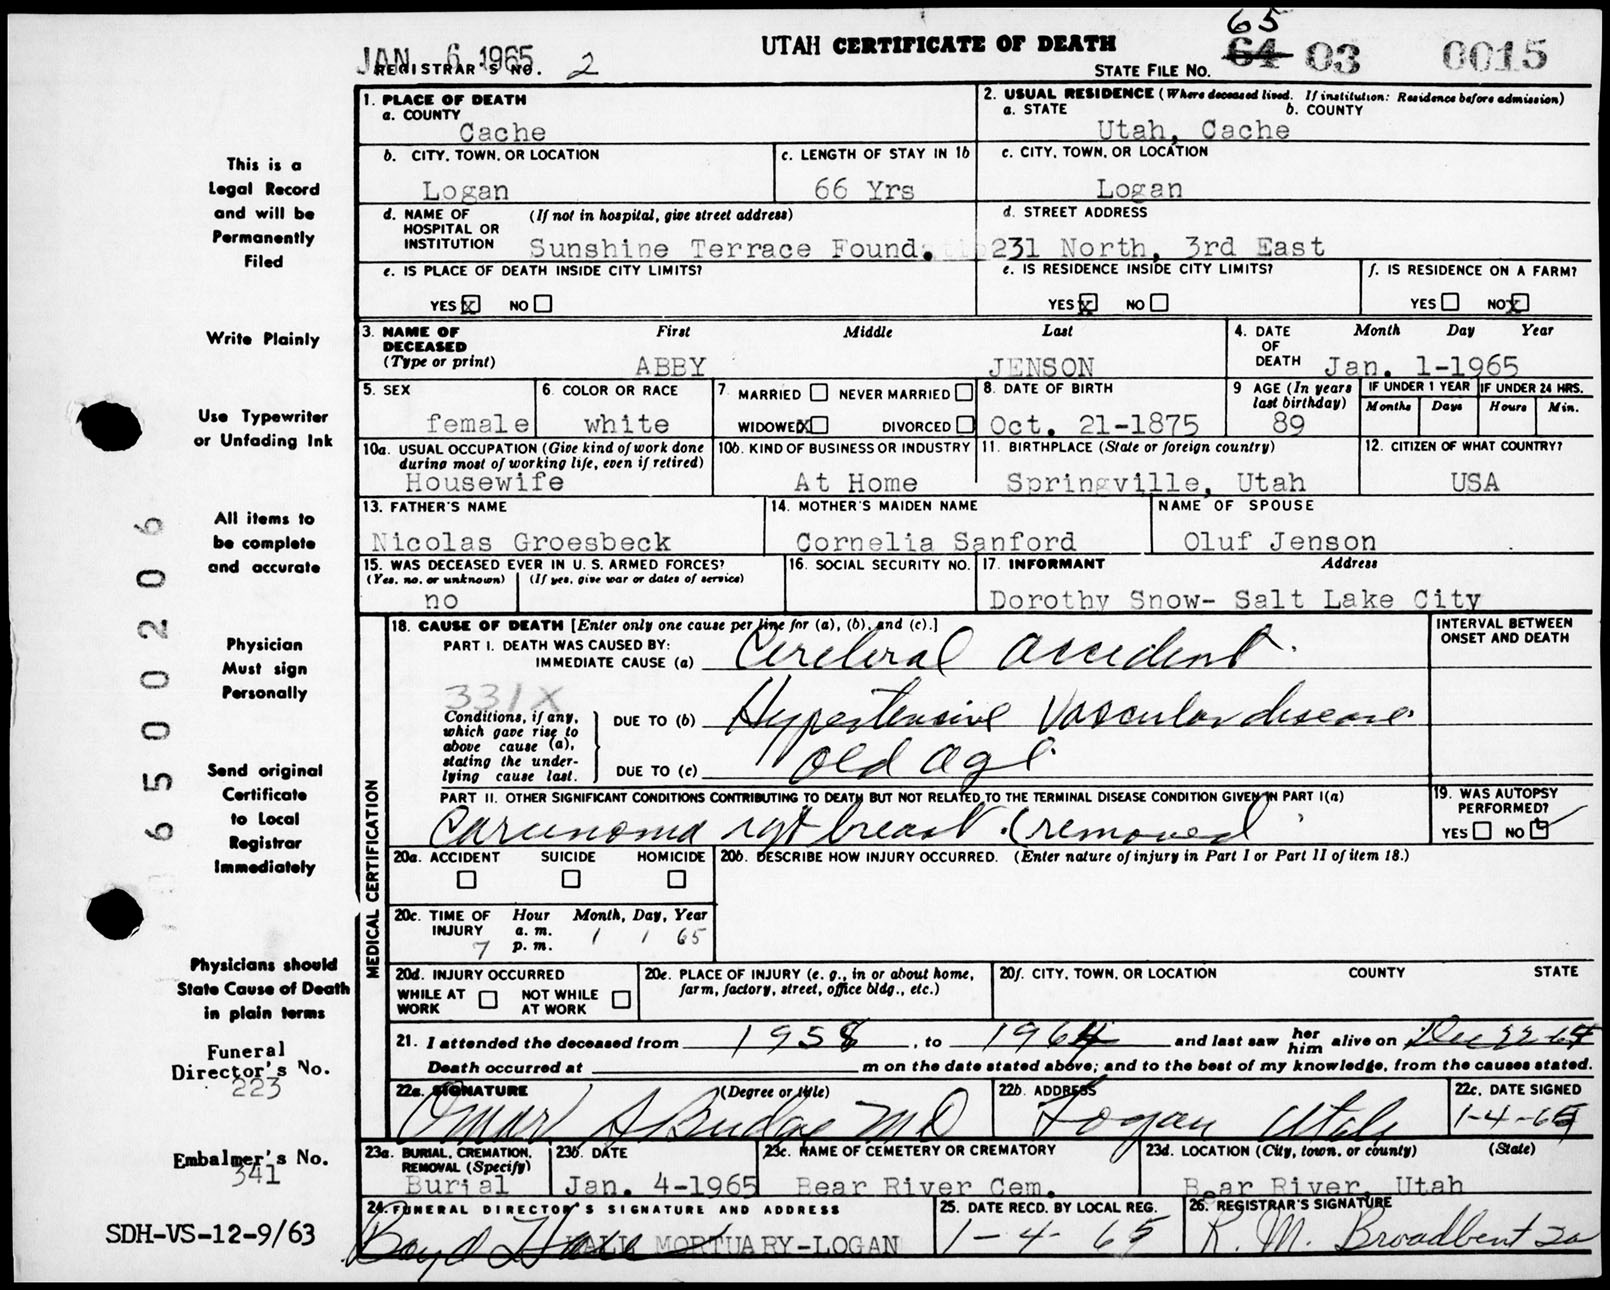 JAN 6 1965
REGISTRAR'S NO. 2
UTAH CERTIFICATE OF DEATH
65
STATE FILE NO. 64 03 0015
1. PLACE OF DEATH
a. COUNTY
Cache
2. USUAL RESIDENCE (Where deceased lived. If institution: Residence before admission)
a. STATE b. COUNTY
Utah, Cache
b. CITY, TOWN, OR LOCATION
Logan
c. LENGTH OF STAY IN 1b
66 Yrs
c. CITY, TOWN, OR LOCATION
Logan
d. NAME OF HOSPITAL OR INSTITUTION (If not in hospital, give street address)
Sunshine Terrace Found.
d. STREET ADDRESS
231 North, 3rd East
e. IS PLACE OF DEATH INSIDE CITY LIMITS?
YES X NO
e. IS RESIDENCE INSIDE CITY LIMITS?
YES X NO
f. IS RESIDENCE ON A FARM?
YES NO X
3. NAME OF DECEASED (Type or print)
First Middle Last
ABBY JENSON
4. DATE OF DEATH Month Day Year
Jan. 1-1965
5. SEX
female
6. COLOR OR RACE
white
7. MARRIED NEVER MARRIED
WIDOWED X DIVORCED
8. DATE OF BIRTH
Oct. 21-1875
9 AGE (In years last birthday)
89
IF UNDER 1 YEAR
Months Days
IF UNDER 24 HRS.
Hours Min.
10a. USUAL OCCUPATION (Give kind of work done during most of working life, even if retired)
Housewife
10b. KIND OF BUSINESS OR INDUSTRY
At Home
11. BIRTHPLACE (State or foreign country)
Springville, Utah
12. CITIZEN OF WHAT COUNTRY?
USA
13. FATHER'S NAME
Nicolas Groesbeck
14. MOTHER'S MAIDEN NAME
Cornelia Sanford
NAME OF SPOUSE
Oluf Jenson
15. WAS DECEASED EVER IN U. S. ARMED FORCES?
(Yes, no, or unknown) (If yes, give war or dates of service)
no
16. SOCIAL SECURITY NO.
17. INFORMANT Address
Dorothy Snow- Salt Lake City
MEDICAL CERTIFICATION
18. CAUSE OF DEATH [Enter only one cause per line for (a), (b), and (c).]
INTERVAL BETWEEN ONSET AND DEATH
PART I. DEATH WAS CAUSED BY:
IMMEDIATE CAUSE (a) Cerebral accident.
331X
Conditions, if any, which gave rise to above cause (a), stating the underlying cause last.
DUE TO (b) Hypertensive Vascular disease.
DUE TO (c) old age
PART II. OTHER SIGNIFICANT CONDITIONS CONTRIBUTING TO DEATH BUT NOT RELATED TO THE TERMINAL DISEASE CONDITION GIVEN IN PART I(a)
Carcinoma rgt breast. (removed)
19. WAS AUTOPSY PERFORMED?
YES NO ✓
20a. ACCIDENT SUICIDE HOMICIDE
20b. DESCRIBE HOW INJURY OCCURRED. (Enter nature of injury in Part I or Part II of item 18.)
20c. TIME OF INJURY Hour Month, Day, Year
a. m.
7 p. m. 1 1 65
20d. INJURY OCCURRED
WHILE AT WORK NOT WHILE AT WORK
20e. PLACE OF INJURY (e. g., in or about home, farm, factory, street, office bldg., etc.)
20f. CITY, TOWN, OR LOCATION COUNTY STATE
21. I attended the deceased from 1958, to 1964 and last saw her him alive on Dec 22-64
Death occurred at m on the date stated above; and to the best of my knowledge, from the causes stated.
22a. SIGNATURE (Degree or title)
Omar S Budge MD
22b. ADDRESS
Logan Utah
22c. DATE SIGNED
1-4-65
23a. BURIAL, CREMATION, REMOVAL (Specify)
Burial
23b. DATE
Jan. 4-1965
23c. NAME OF CEMETERY OR CREMATORY
Bear River Cem.
23d. LOCATION (City, town, or county) (State)
Bear River, Utah
24. FUNERAL DIRECTOR'S SIGNATURE AND ADDRESS
HALL MORTUARY-LOGAN
25. DATE RECD. BY LOCAL REG.
1-4-65
26. REGISTRAR'S SIGNATURE
R. M. Broadbent
This is a
Legal Record
and will be
Permanently
Filed
Write Plainly
Use Typewriter
or Unfading Ink
All items to
be complete
and accurate
Physician
Must sign
Personally
Send original
Certificate
to Local
Registrar
Immediately
Physicians should
State Cause of Death
in plain terms
Funeral
Director's No.
223
Embalmer's No.
341
SDH-VS-12-9/63
6500206